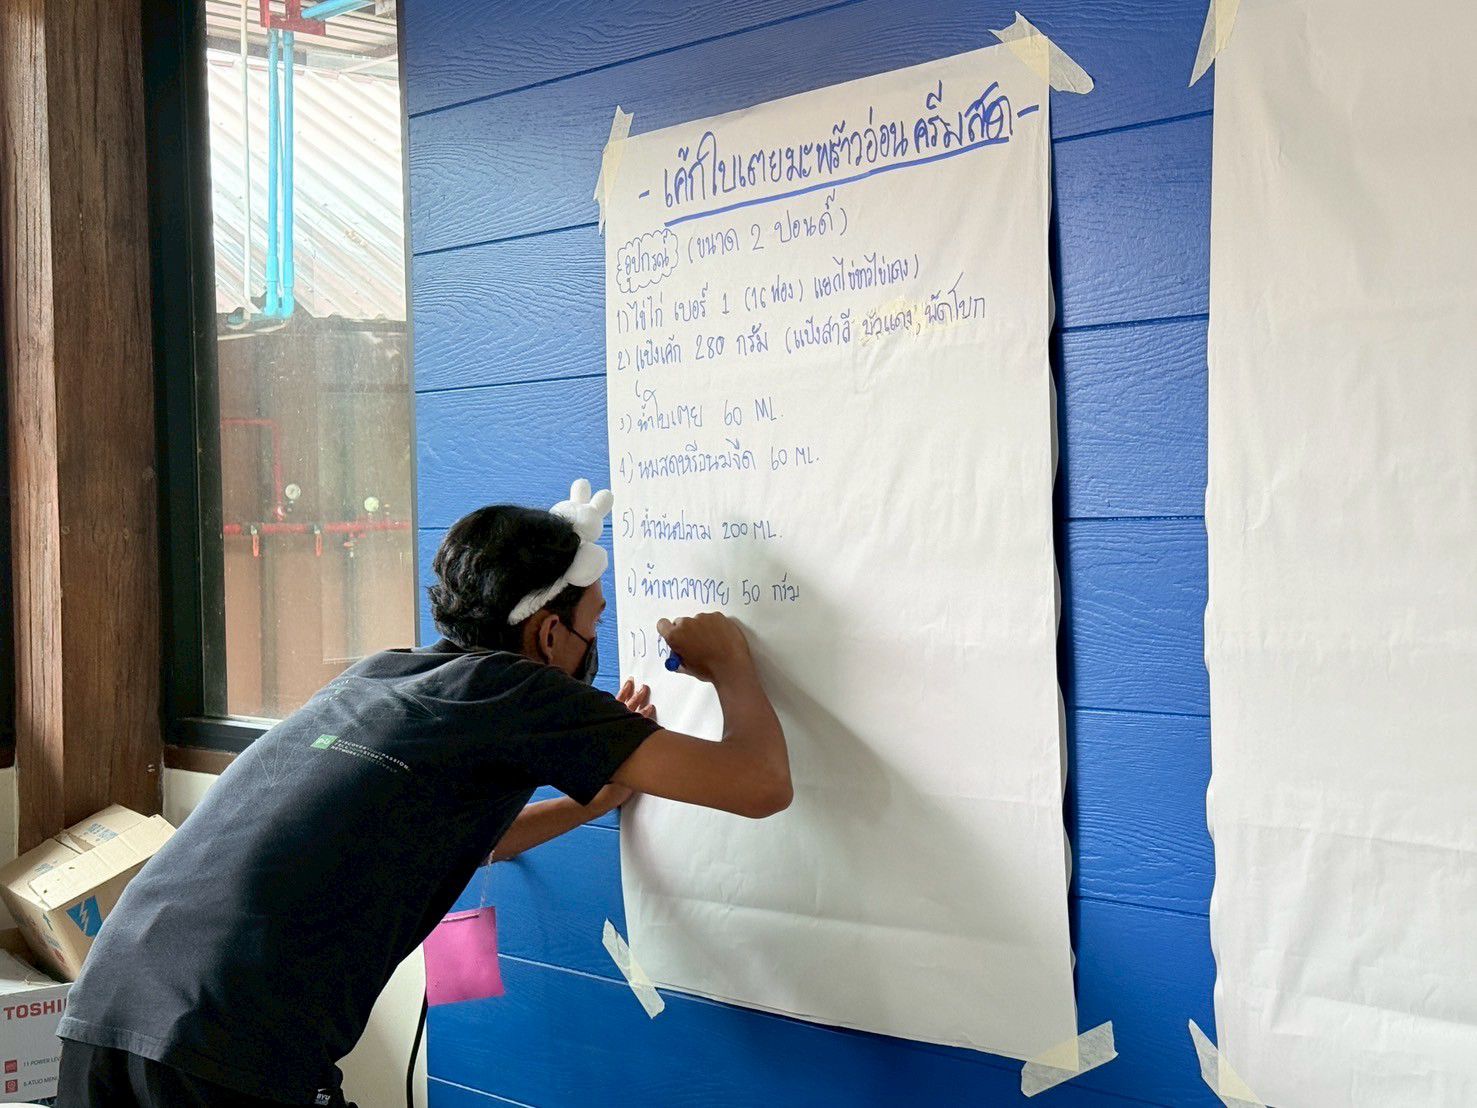 - เค้กใบเตยมะพร้าวอ่อนครีมสด -
อุปกรณ์ (ขนาด 2 ปอนด์)
1) ไข่ไก่ เบอร์ 1 (16 ฟอง) แยกไข่ขาวไข่แดง)
2) แป้งเค้ก 280 กรัม (แป้งสาลี บัวแดง, พัดโบก
3) น้ำใบเตย 60 ML.
4) นมสดหรือนมจืด 60 ML.
5) น้ำมันปลาม 200 ML.
6) น้ำตาลทราย 50 กรัม
7.)
TOSHI
11 POWER LE
6 ATUO MENU